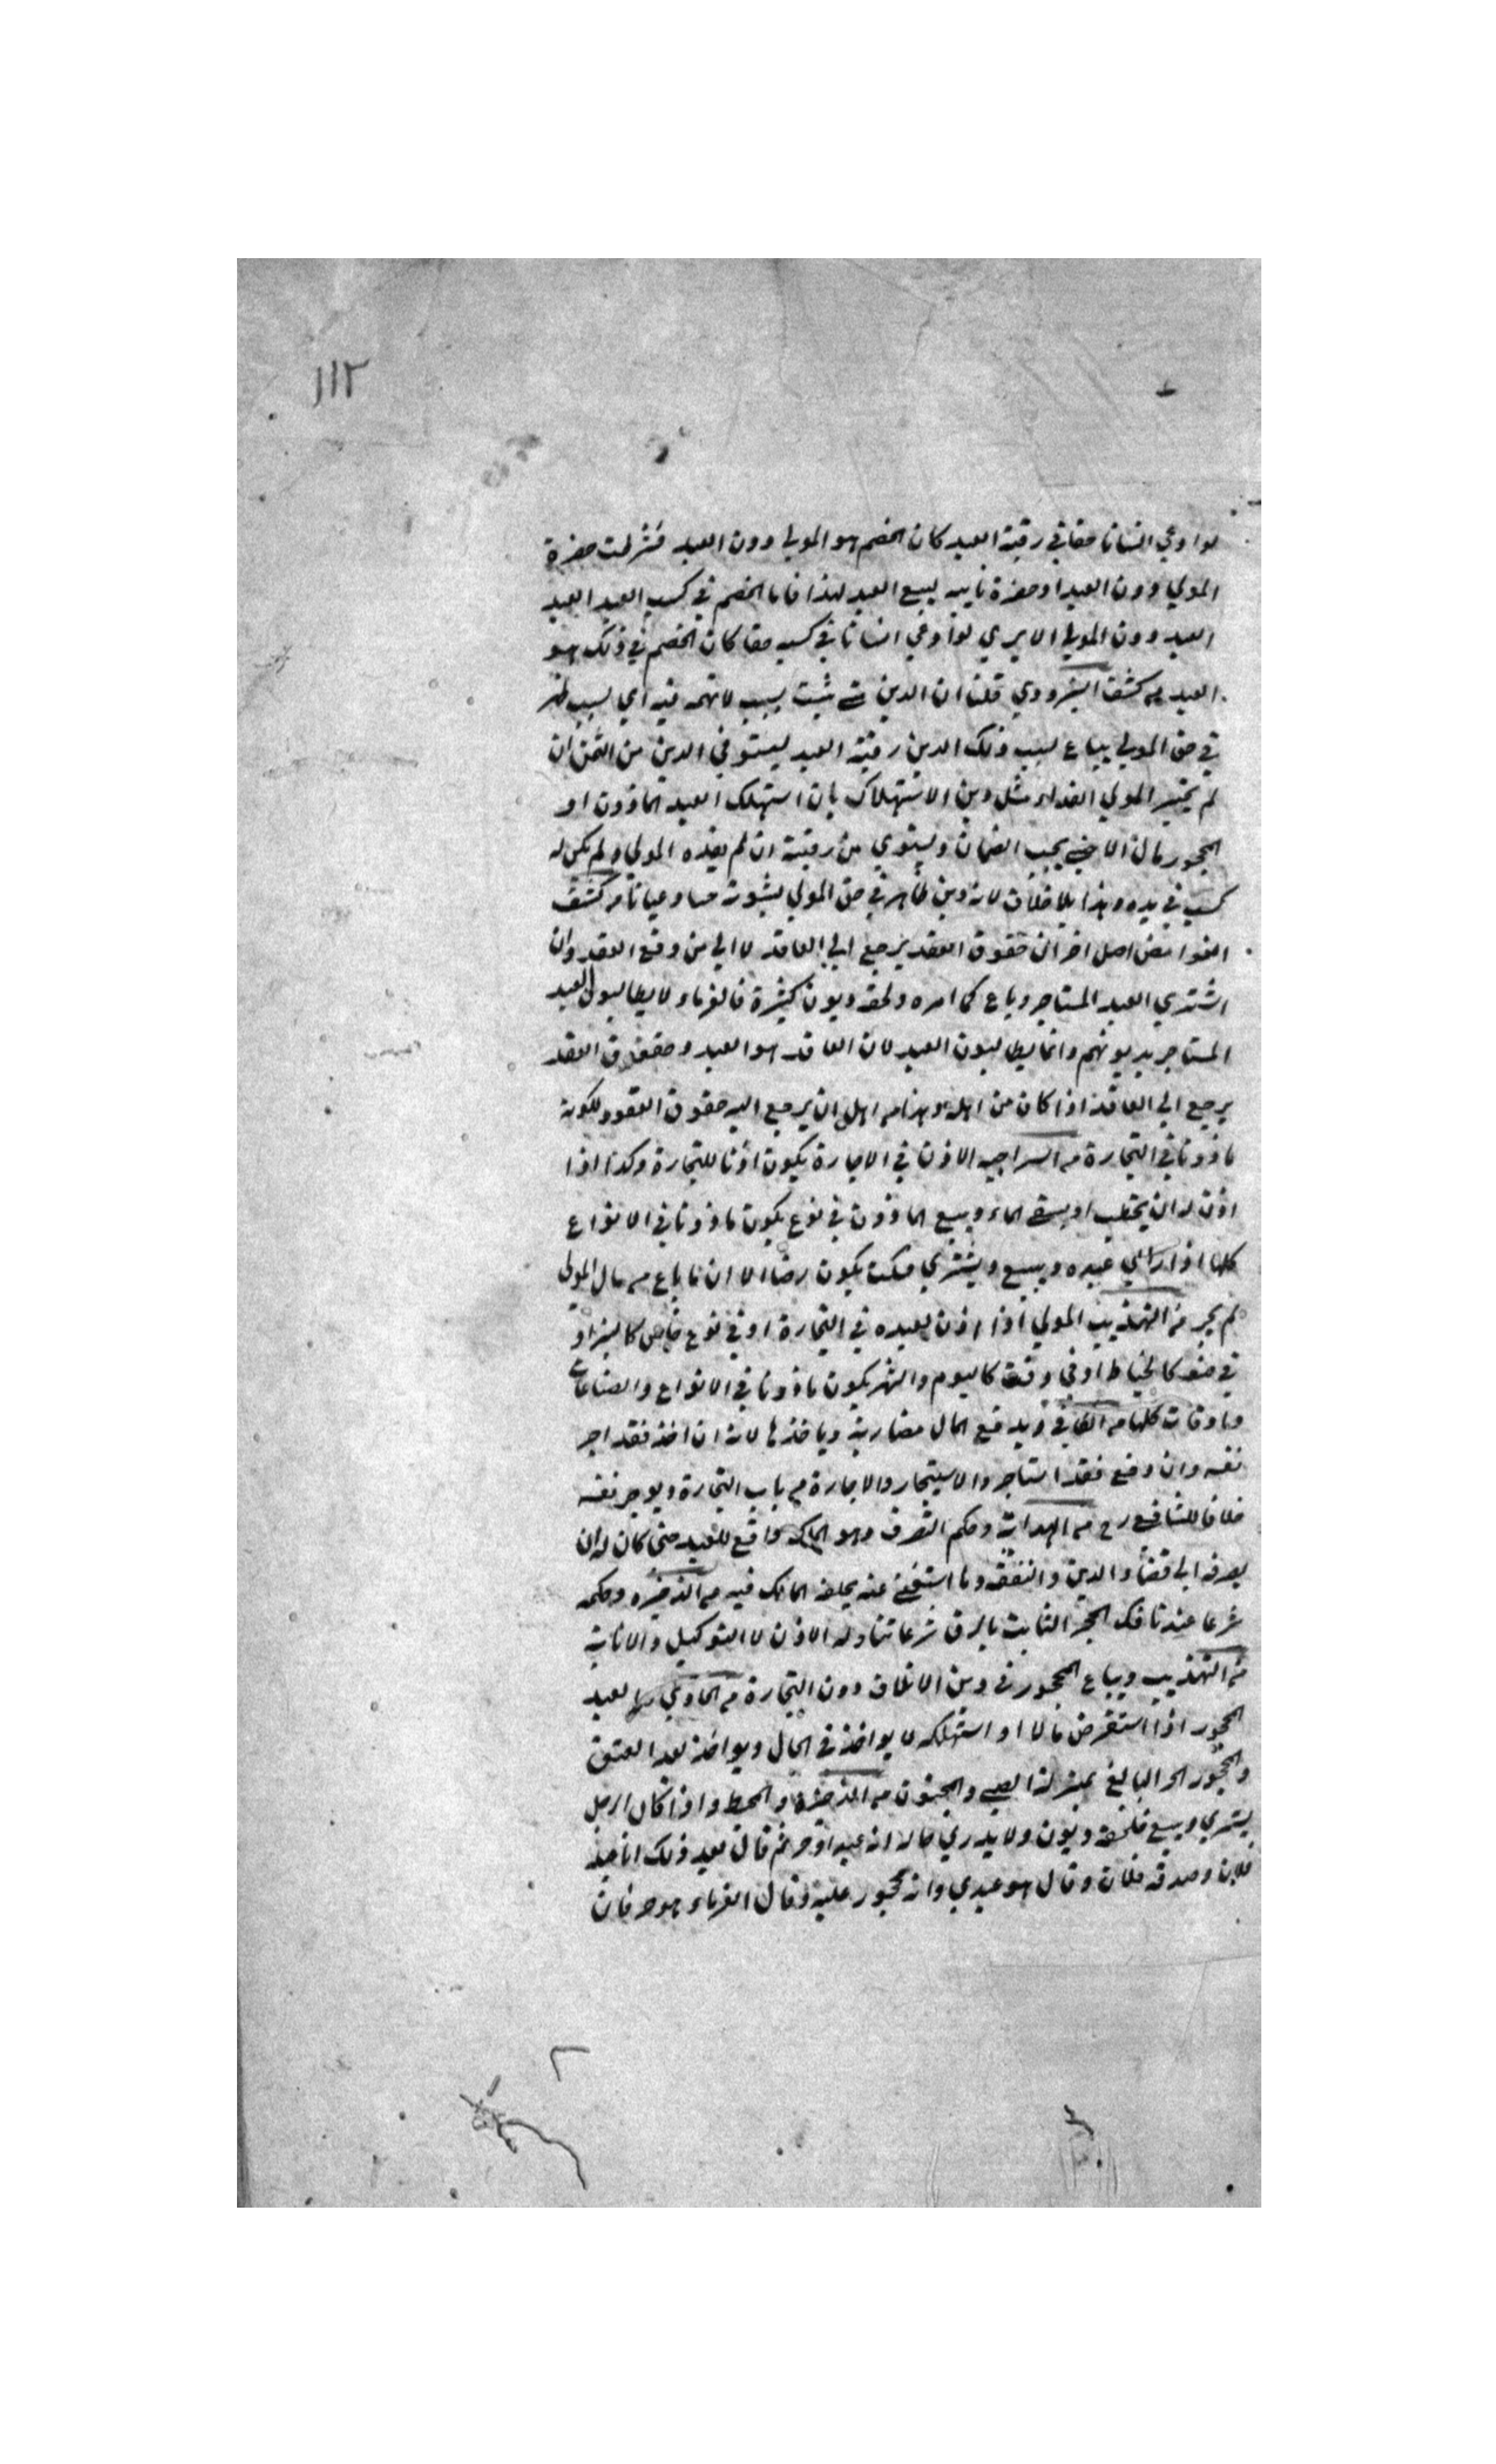 ١١٢
لو ادعي انسانا حقا في رقبة العبد كان الخصم هو المولي دون العبد فشرطت حضرة
المولي دون العبد او حضرة نايبه لبيع العبد لهذا فاما الخصم في كسب العبد العبد
العبد دون المولي الا يري لو ادعي انسانا في كسبه حقا كان الخصم في ذلك هو
العبد من كشف البزدوي قلنا ان الدين متي ثبت بسبب لا تهمة فيه اي بسبب ظهر
في حق المولي يباع بسبب ذلك الدين رقبة العبد ليستوفي الدين من الثمن ان
لم يختر المولي الفداء مثل دين الاستهلاك بان استهلك العبد الماذون او
المحجور مال الاجنبي يجب الضمان ويستوفي من رقبته ان لم يفده المولي ولم يكن له
كسب في يده وهذا بلا خلاف لانه دين ظاهر في حق المولي بثبوته حسا وعيانا من كشف
الغوامض اصل اخر ان حقوق العقد يرجع الي العاقد لا الي من وقع العقد وان
اشتري العبد المستاجر وباع كما امره ولحقه ديون كثيرة فالغرماء لا يطالبون العبد
المستاجر بديونهم وانما يطالبون العبد لان العاقد هو العبد وحقوق العقد
يرجع الي العاقد اذا كان من اهله وهذا من اهل ان يرجع اليه حقوق العقود لكونه
ماذونا في التجارة من السراجيه الاذن في الاجارة يكون اذنا للتجارة وكذا اذا
اذن له ان يحتطب او يستقي الماء ويبيع الماذون في نوع يكون ماذونا في الانواع
كلها اذا رأي عبده ويبيع ويشتري فسكت يكون رضا الا ان ما باع من مال المولي
لم يجز من التهذيب المولي اذا اذن لعبده في التجارة او في نوع خاص كالبز او
في صنعة كالخياط او في وقت كاليوم والشهر يكون ماذونا في الانواع والصناعات
والاوقات كلها من الكافي وله دفع المال مضاربة وياخذها لانه ان اخذ فقد اجر
نفسه وان دفع فقد استاجر والاستيجار والاجارة من باب التجارة ويوجر نفسه
خلافا للشافعي رح من الهداية وحكم التصرف وهو الملك واقع للعبد حتى كان له ان
يصرفه الي قضاء الدين والنفقة وما استغني عنه يخلفه المالك فيه من الذخيره وحكمه
شرعا عندنا فك الحجر الثابت بالرق شرعا تناوله الاذن لا التوكيل والانابة
من التهذيب ويباع المحجور في دين الاتلاف دون التجارة من الحاوي العبد
المحجور اذا استقرض مالا او استهلكه لا يواخذ في الحال ويواخذ بعد العتق
والمحجور الحر البالغ بمنزلة الصبي والمجنون من الذخيرة والمحيط واذا كان الرجل
يشتري ويبيع فلحقه ديون ولا يدري حاله انه عبد او حر ثم قال بعد ذلك انا عبد
فلان وصدقه فلان وقال هو عبدي وانه محجور عليه وقال الغرماء هو حر فان